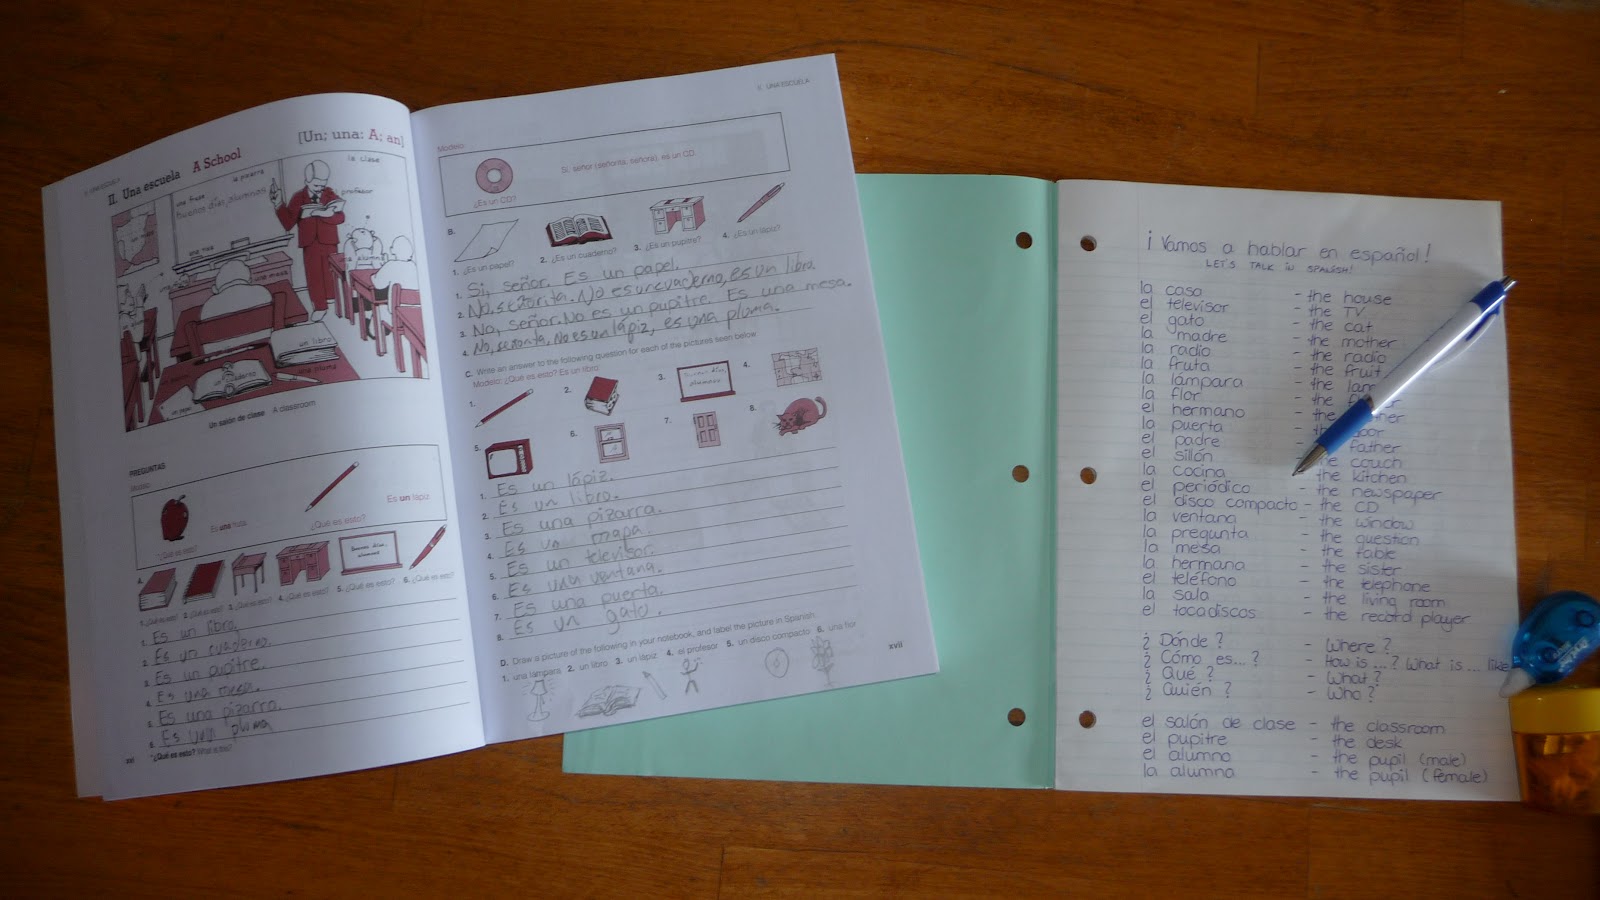 II. UNA ESCUELA
II. Una escuela A School
[Un; una: A; an]
la clase
la pizarra
una frase
buenos días, alumnos
el profesor
una mesa
un libro
una pluma
un papel
Un salón de clase A classroom
PREGUNTAS
Modelo:
Es una fruta.
Es un lápiz.
*¿Qué es esto?
¿Qué es esto?
A.
Buenos días, alumnos
1. ¿Qué es esto? 2. ¿Qué es esto? 3. ¿Qué es esto? 4. ¿Qué es esto? 5. ¿Qué es esto? 6. ¿Qué es esto?
1. Es un libro.
2. Es un cuaderno.
3. Es un pupitre.
4. Es una mesa.
5. Es una pizarra.
6. Es una pluma
xvi
*¿Qué es esto? What is this?
II. UNA ESCUELA
Modelo:
Sí, señor (señorita, señora), es un CD.
¿Es un CD?
B.
1. ¿Es un papel? 2. ¿Es un cuaderno? 3. ¿Es un pupitre? 4. ¿Es un lápiz?
1. Si, señor. Es un papel.
2. No, señorita. No es un cuaderno, es un libro.
3. No, señor. No es un pupitre. Es una mesa.
4. No, señorita, No es un lápiz, es una pluma.
C. Write an answer to the following question for each of the pictures seen below.
Modelo: ¿Qué es esto? Es un libro.
1. 2. 3. 4.
Buenos días, alumnos
5. 6. 7. 8.
1. Es un lápiz.
2. Es un libro.
3. Es una pizarra.
4. Es un mapa
5. Es un televisor.
6. Es una ventana.
7. Es una puerta.
8. Es un gato.
D. Draw a picture of the following in your notebook, and label the picture in Spanish.
1. una lámpara 2. un libro 3. un lápiz 4. el profesor 5. un disco compacto 6. una flor
xvii
¡ Vamos a hablar en español !
LET'S TALK IN SPANISH!
la casa - the house
el televisor - the TV
el gato - the cat
la madre - the mother
la radio - the radio
la fruta - the fruit
la lámpara - the
la flor - the
el hermano - the
la puerta
el padre father
el sillón the couch
la cocina - the kitchen
el periódico - the newspaper
el disco compacto - the CD
la ventana - the window
la pregunta - the question
la mesa - the table
la hermana - the sister
el teléfono - the telephone
la sala - the living room
el tocadiscos - the record player
¿ Dónde ? - Where ?
¿ Cómo es... ? - How is ... ? What is .... like
¿ Qué ? - What ?
¿ Quién ? - Who ?
el salón de clase - the classroom
el pupitre - the desk
el alumno - the pupil (male)
la alumna - the pupil (female)